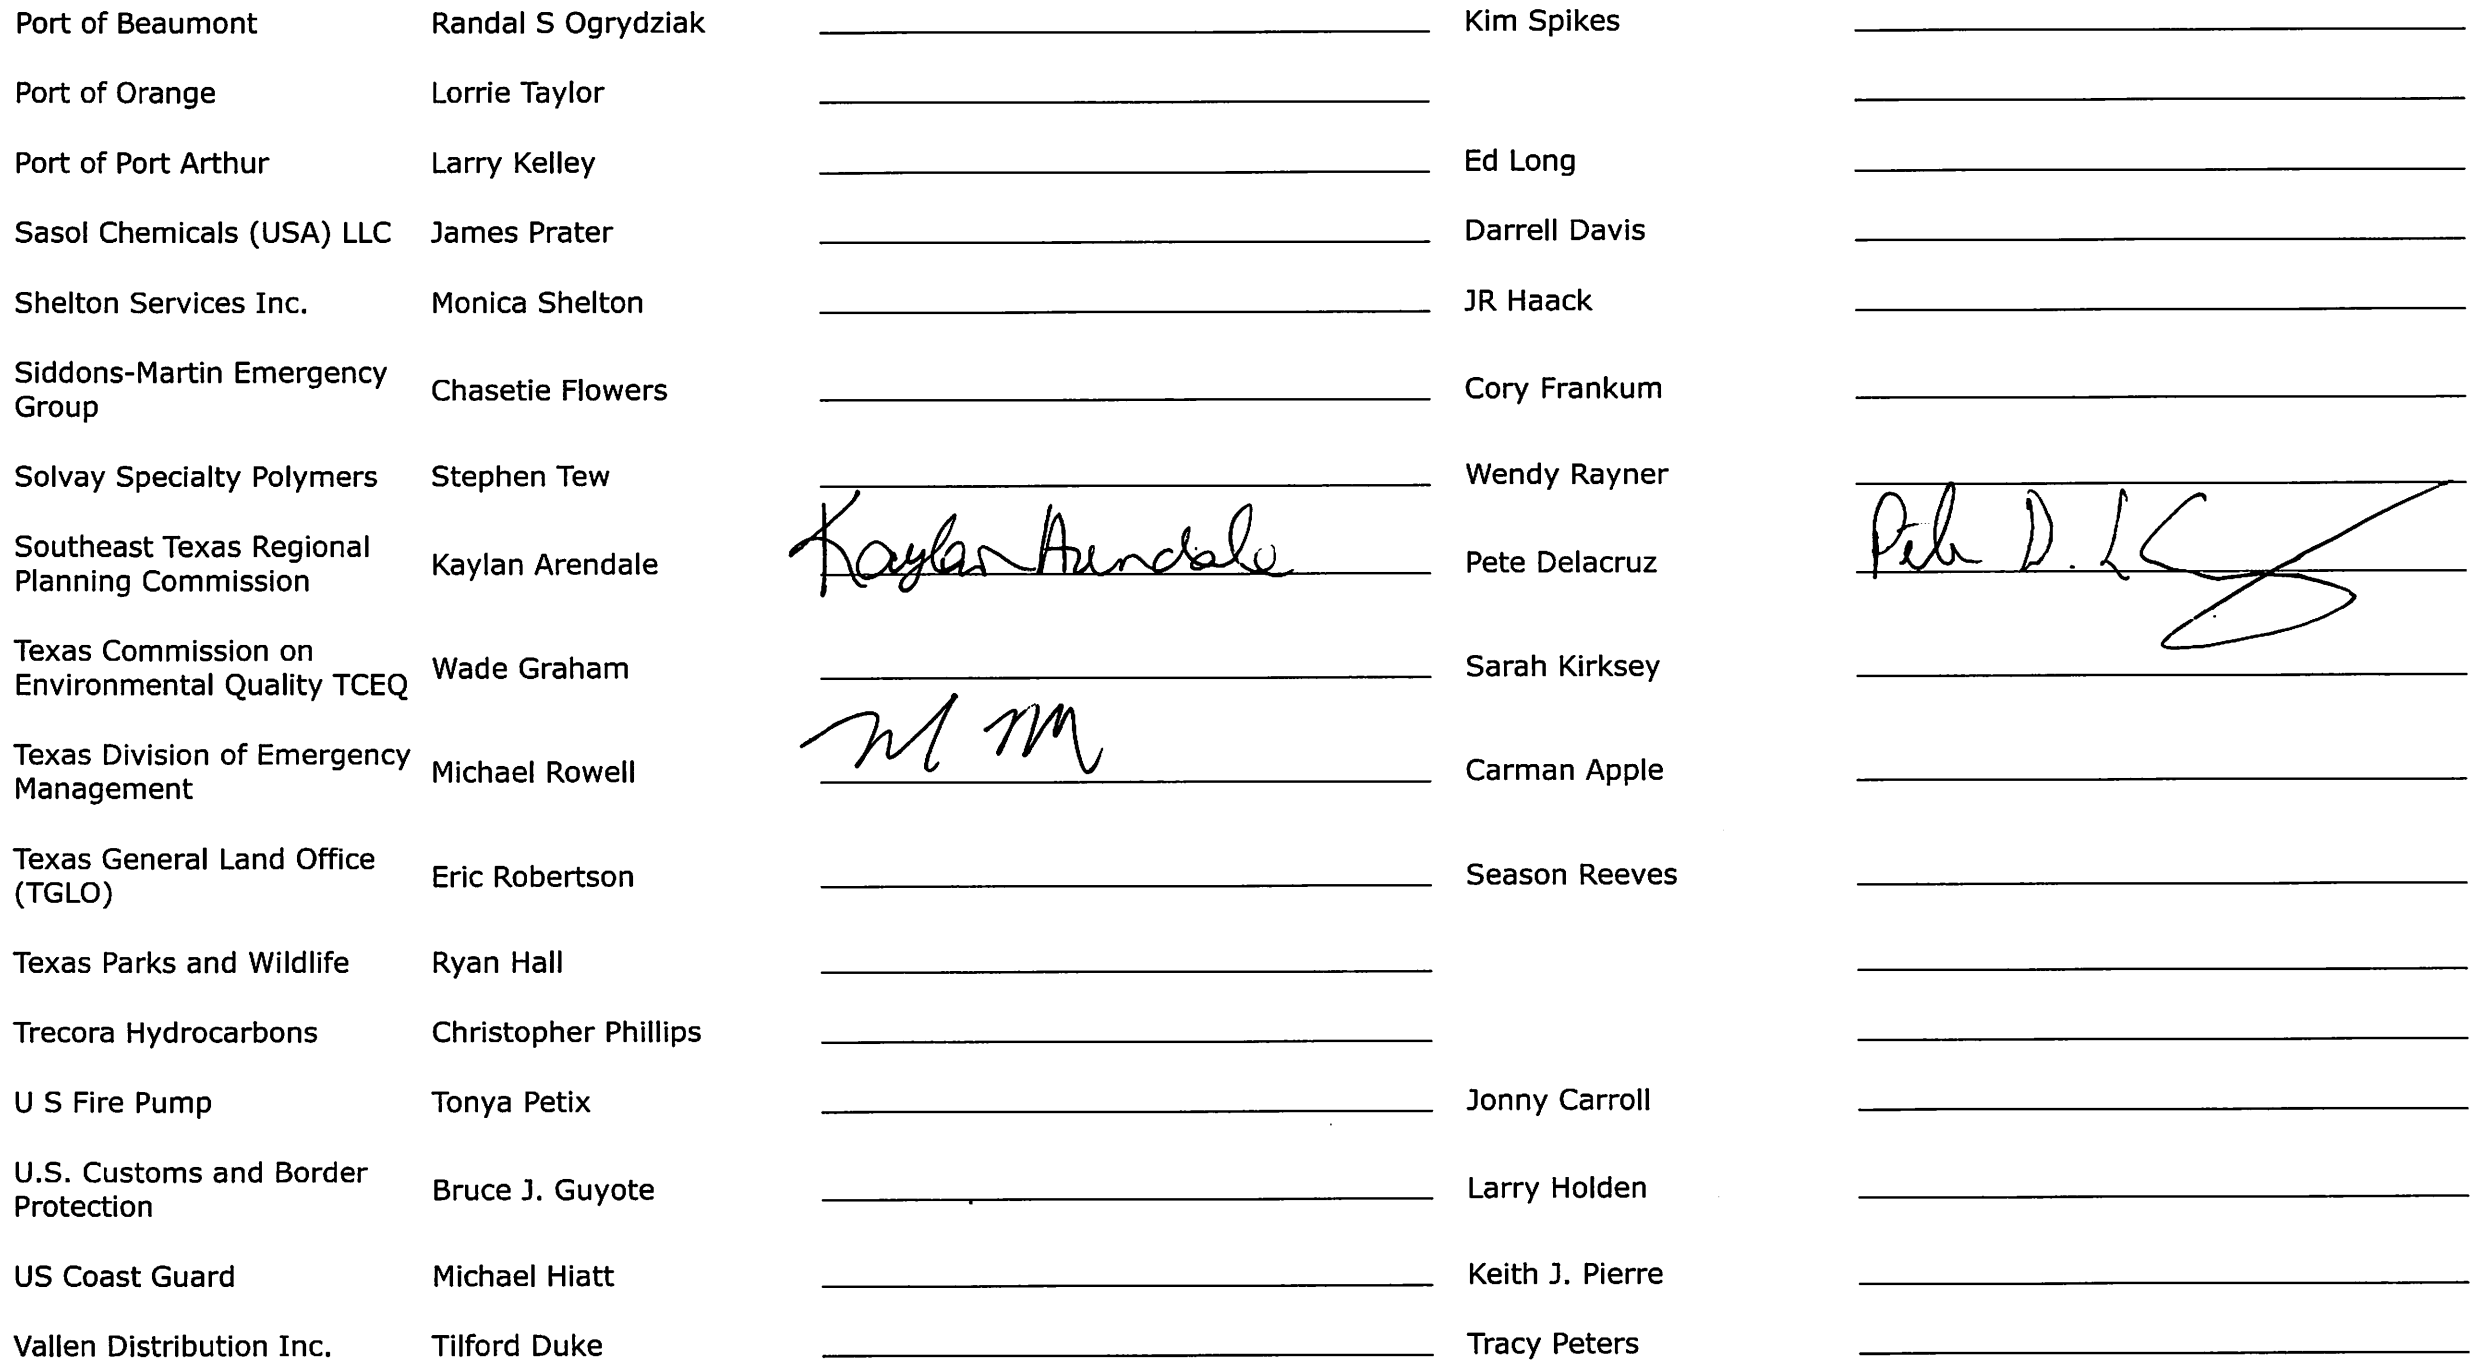 Port of Beaumont Randal S Ogrydziak Kim Spikes
Port of Orange Lorrie Taylor
Port of Port Arthur Larry Kelley Ed Long
Sasol Chemicals (USA) LLC James Prater Darrell Davis
Shelton Services Inc. Monica Shelton JR Haack
Siddons-Martin Emergency
Group Chasetie Flowers Cory Frankum
Solvay Specialty Polymers Stephen Tew Wendy Rayner
Southeast Texas Regional
Planning Commission Kaylan Arendale Kaylan Arendale Pete Delacruz
Texas Commission on
Environmental Quality TCEQ Wade Graham Sarah Kirksey
Texas Division of Emergency
Management Michael Rowell Carman Apple
Texas General Land Office
(TGLO) Eric Robertson Season Reeves
Texas Parks and Wildlife Ryan Hall
Trecora Hydrocarbons Christopher Phillips
U S Fire Pump Tonya Petix Jonny Carroll
U.S. Customs and Border
Protection Bruce J. Guyote Larry Holden
US Coast Guard Michael Hiatt Keith J. Pierre
Vallen Distribution Inc. Tilford Duke Tracy Peters